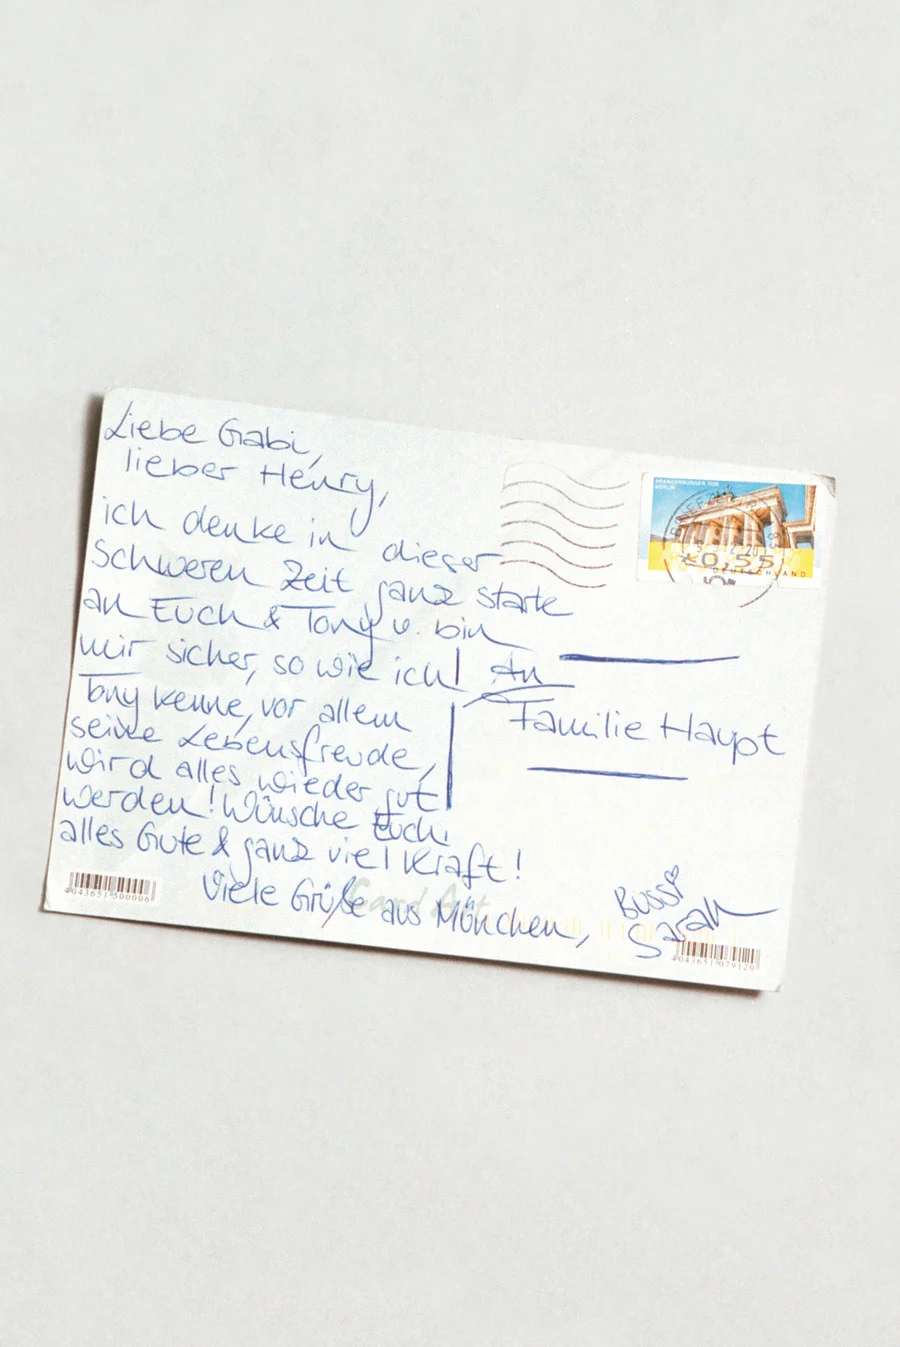 Liebe Gabi,
lieber Henry,
ich denke in dieser
schweren Zeit ganz starke
an Euch & Tony u. bin
mir sicher, so wie ich
Tony kenne, vor allem
seine Lebensfreude,
wird alles wieder gut
werden! Wünsche Euch
alles Gute & ganz viel Kraft!
Viele Grüße aus München,
Bussi
Sarah
An
Familie Haupt
BRANDENBURGER TOR
BERLIN
€0,55
DEUTSCHLAND
Card Art
4 043651 500006
4 043651 079120